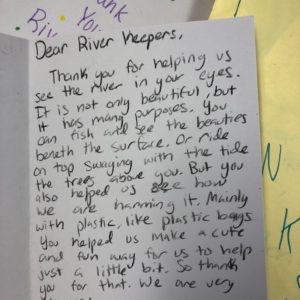 Dear River Keepers,
Thank you for helping us
see the river in your eyes.
It is not only beautiful, but
it has many purposes. You
can fish and see the beauties
beneth the surface. Or ride
on top swaying with the tide
the trees above you. But you
also helped us see how
we are harming it. Mainly
with plastic, like plastic bags
You helped us make a cute
and fun way for us to help
just a little bit. So thank
you for that. We are very